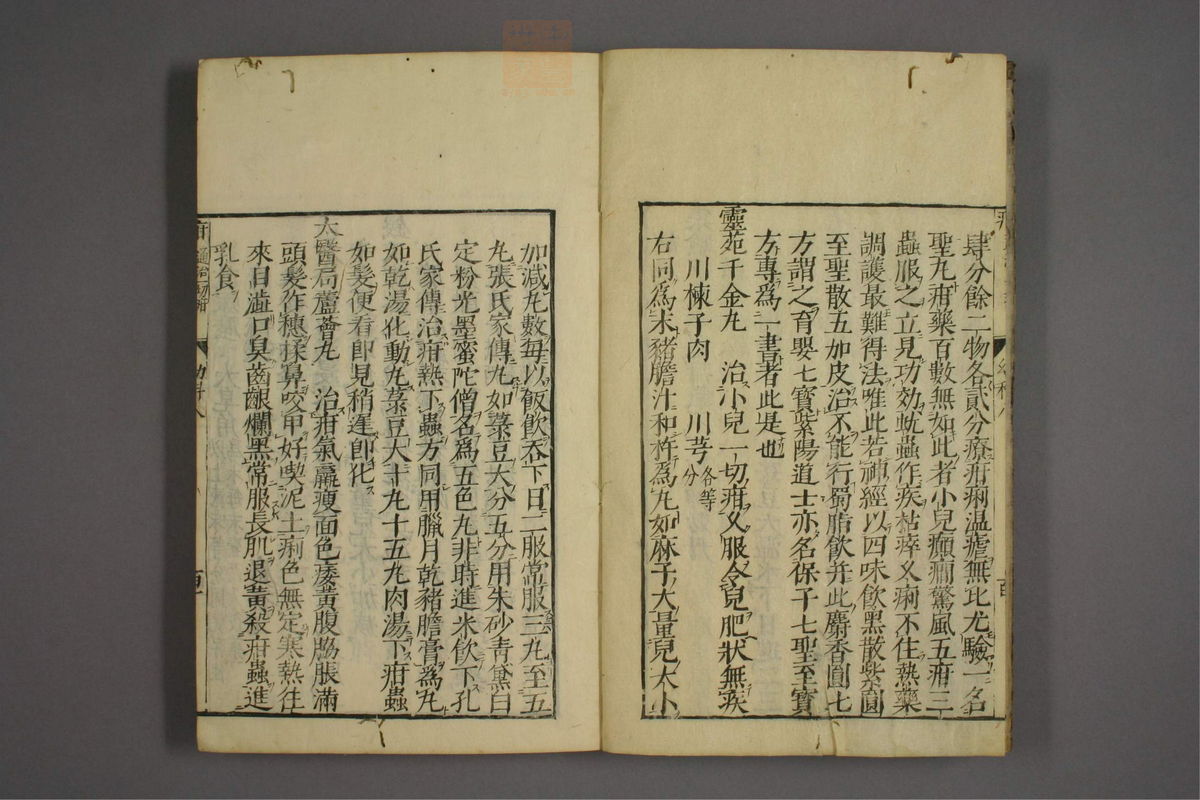 肆分餘二物各貳分療疳痢温瘧無比尤驗一名
聖九疳藥百數無如此者小兒癲癇驚風五疳三
蟲服之立見功効蚘蟲作疾枯瘁久痢不住熱藥
調護最難得法唯此若神經以四味飲黑散紫圓
至聖散五加皮治不能行蜀脂飲并此麝香圓七
方謂之育嬰七寶紫陽道士亦名保子七聖至寶
方專爲一書者此是也
靈苑千金丸　治小兒一切疳久服令兒肥狀無疾
川楝子肉　川芎各等分
右同爲末豬膽汁和杵爲丸如麻子大量兒大小
加減丸數每以飯飲吞下日二服常服三丸至五
丸張氏家傳丸如菉豆大分五分用朱砂青黛白
定粉光墨蜜陀僧名爲五色丸非時進米飲下孔
氏家傳治疳熱下蟲方同用臘月乾豬膽膏爲丸
如乾湯化動丸菉豆大十丸十五丸肉湯下疳蟲
如髮便看即見稍遲即化
太醫局蘆薈丸　治疳氣羸瘦面色痿黃腹脇脹滿
頭髮作穗揉鼻咬甲好喫泥土痢色無定寒熱往
來目澁口臭齒齦爛黑常服長肌退黃殺疳蟲進
乳食